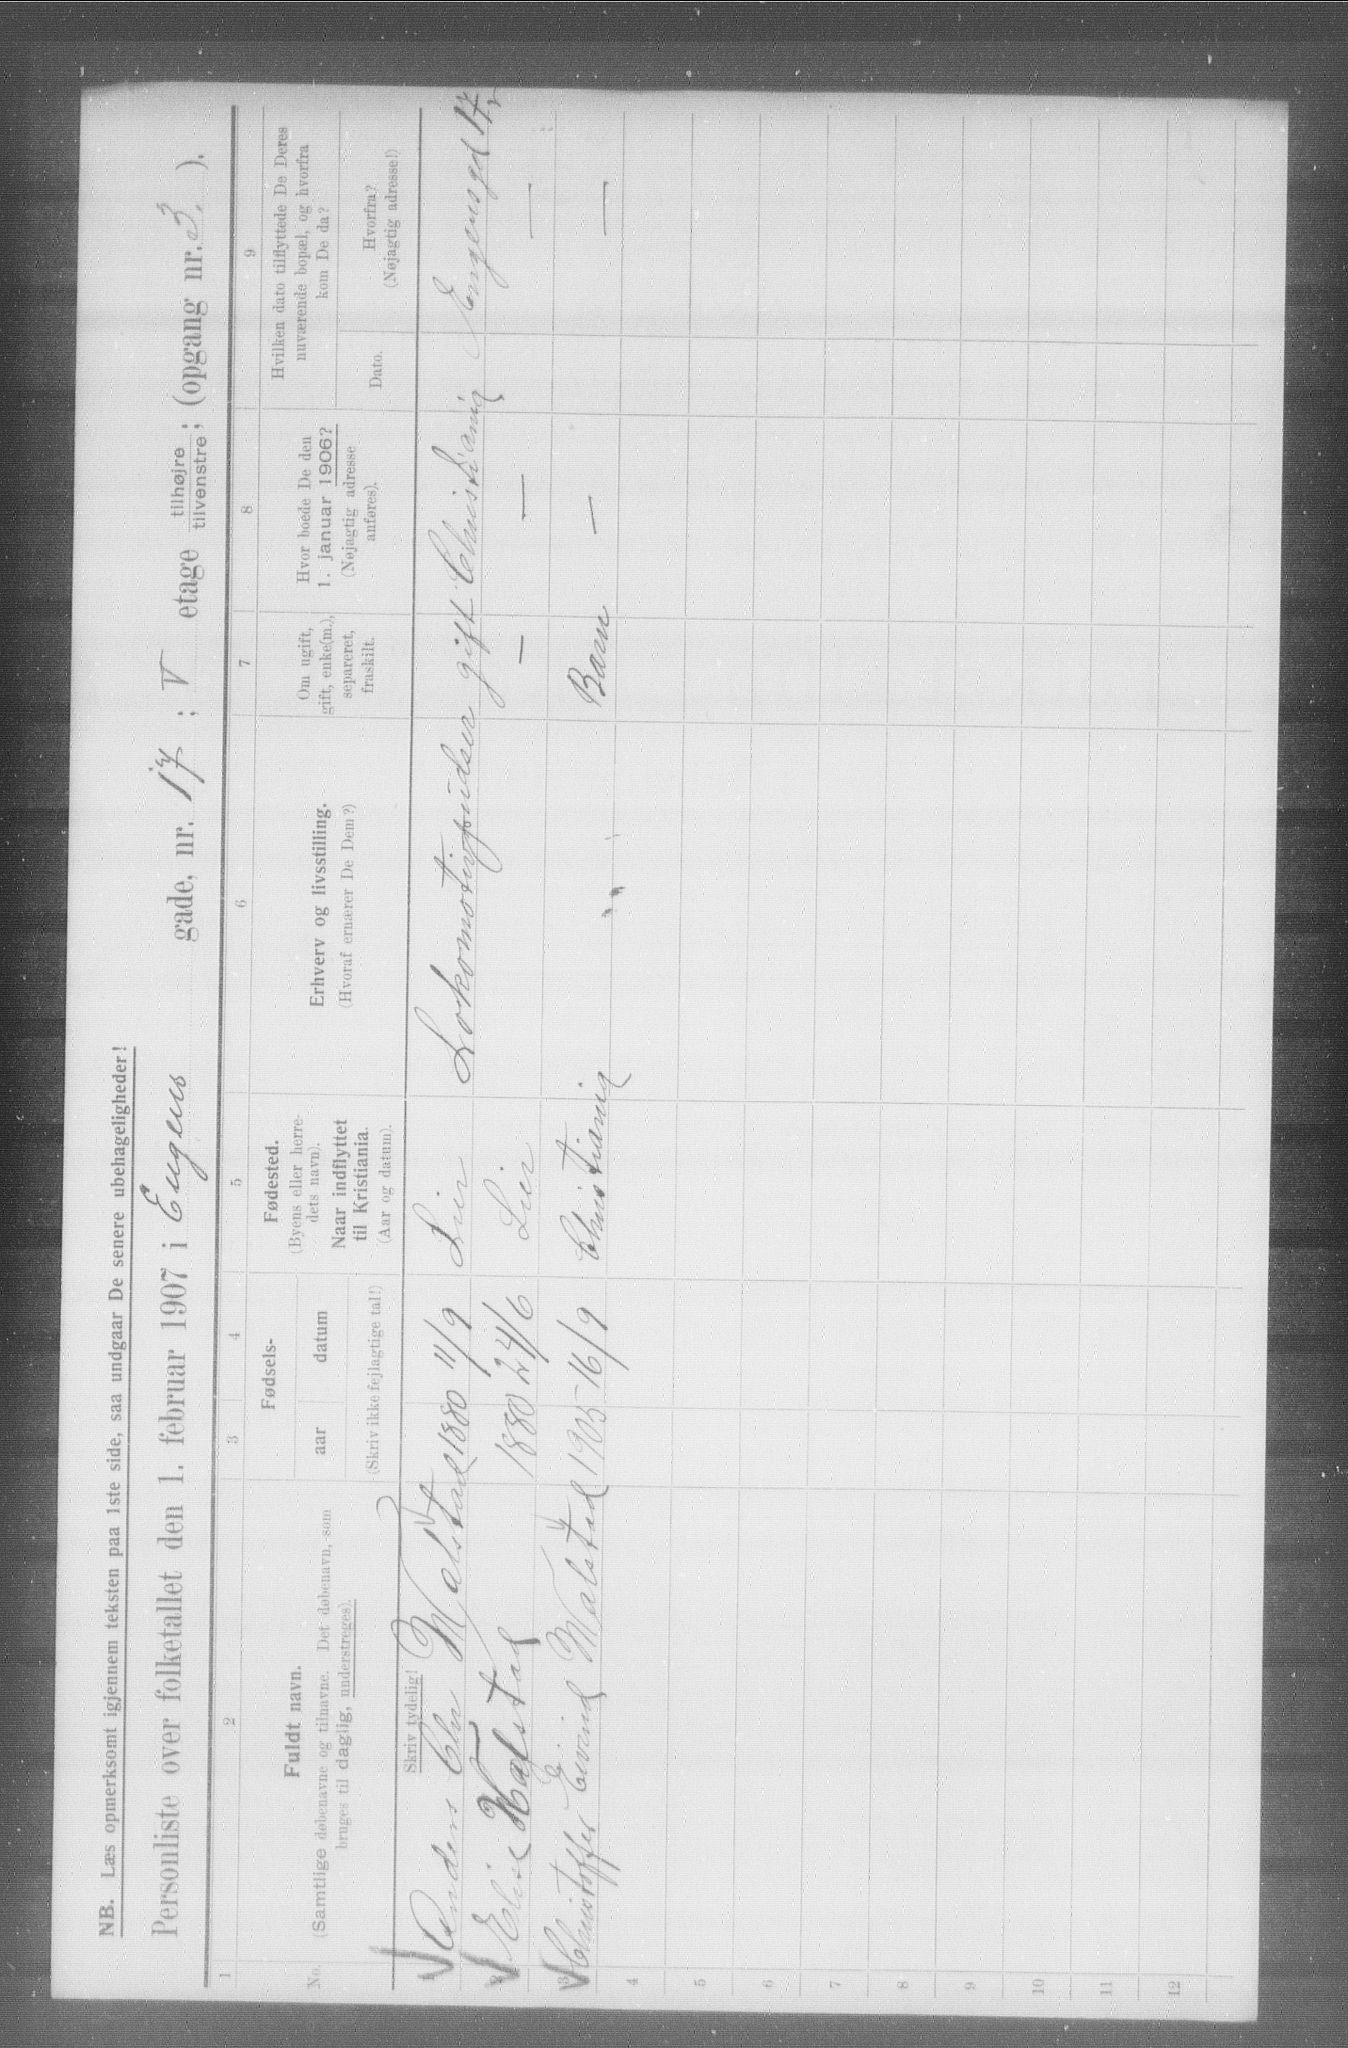 NB. Læs opmerksomt igjennem teksten paa 1ste side, saa undgaar De senere ubehageligheder!
Personliste over folketallet den 1. februar 1907 i Eugens gade, nr. 17 ; V etage tilhøjre / tilvenstre ; (opgang nr. 3. ).
1 2 3 4 5 6 7 8 9
No.
Fuldt navn.
(Samtlige døbenavne og tilnavne. Det døbenavn, som
bruges til daglig, understreges).
Fødsels-
aar datum
(Skriv ikke fejlagtige tal!)
Fødested.
(Byens eller herre-
dets navn).
Naar indflyttet
til Kristiania.
(Aar og datum).
Erhverv og livsstilling.
(Hvoraf ernærer De Dem?)
Om ugift,
gift, enke(m.),
separeret,
fraskilt.
Hvor boede De den
1. januar 1906?
(Nøjagtig adresse
anføres).
Hvilken dato tilflyttede De Deres
nuværende bopæl, og hvorfra
kom De da?
Dato.
Hvorfra?
(Nøjagtig adresse!)
Skriv tydelig!
Anders Chr Malstad 1880 11/9 Lier Lokomotivpudser gift Christiania Eugensgd 17
Elise 1880 24/6 Lier — — —
3 Christoffer Eivind Malstad 1905 16/9 Christiania " Barn — —
4
5
6
7
8
9
10
11
12